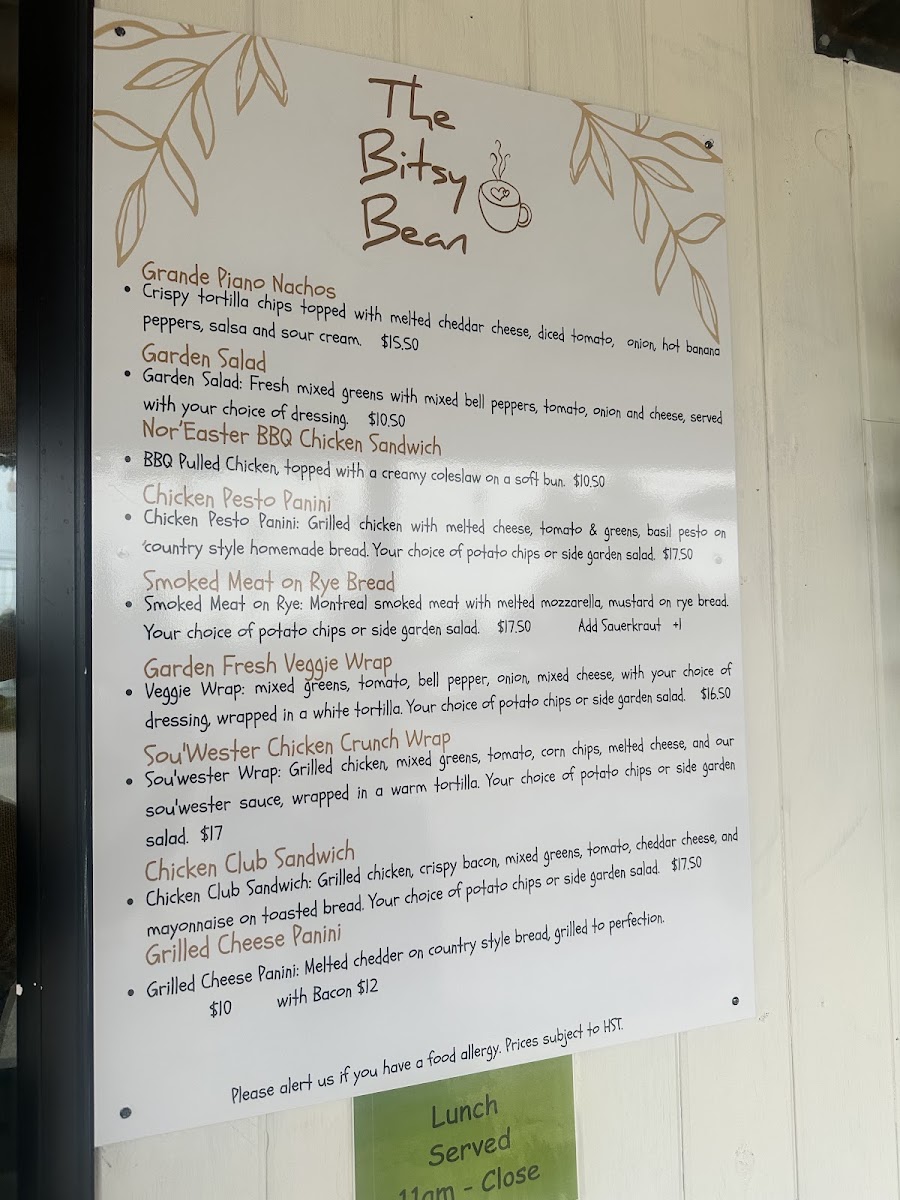 The
Bitsy
Bean
Grande Piano Nachos
• Crispy tortilla chips topped with melted cheddar cheese, diced tomato, onion, hot banana
peppers, salsa and sour cream. $15.50
Garden Salad
• Garden Salad: Fresh mixed greens with mixed bell peppers, tomato, onion and cheese, served
with your choice of dressing. $10.50
Nor'Easter BBQ Chicken Sandwich
• BBQ Pulled Chicken, topped with a creamy coleslaw on a soft bun. $10.50
Chicken Pesto Panini
• Chicken Pesto Panini: Grilled chicken with melted cheese, tomato & greens, basil pesto on
country style homemade bread. Your choice of potato chips or side garden salad. $17.50
Smoked Meat on Rye Bread
• Smoked Meat on Rye: Montreal smoked meat with melted mozzarella, mustard on rye bread.
Your choice of potato chips or side garden salad. $17.50 Add Sauerkraut +1
Garden Fresh Veggie Wrap
• Veggie Wrap: mixed greens, tomato, bell pepper, onion, mixed cheese, with your choice of
dressing, wrapped in a white tortilla. Your choice of potato chips or side garden salad. $16.50
Sou'Wester Chicken Crunch Wrap
• Sou'wester Wrap: Grilled chicken, mixed greens, tomato, corn chips, melted cheese, and our
sou'wester sauce, wrapped in a warm tortilla. Your choice of potato chips or side garden
salad. $17
Chicken Club Sandwich
• Chicken Club Sandwich: Grilled chicken, crispy bacon, mixed greens, tomato, cheddar cheese, and
mayonnaise on toasted bread. Your choice of potato chips or side garden salad. $17.50
Grilled Cheese Panini
• Grilled Cheese Panini: Melted chedder on country style bread, grilled to perfection.
$10 with Bacon $12
Please alert us if you have a food allergy. Prices subject to HST.
Lunch
Served
11am - Close